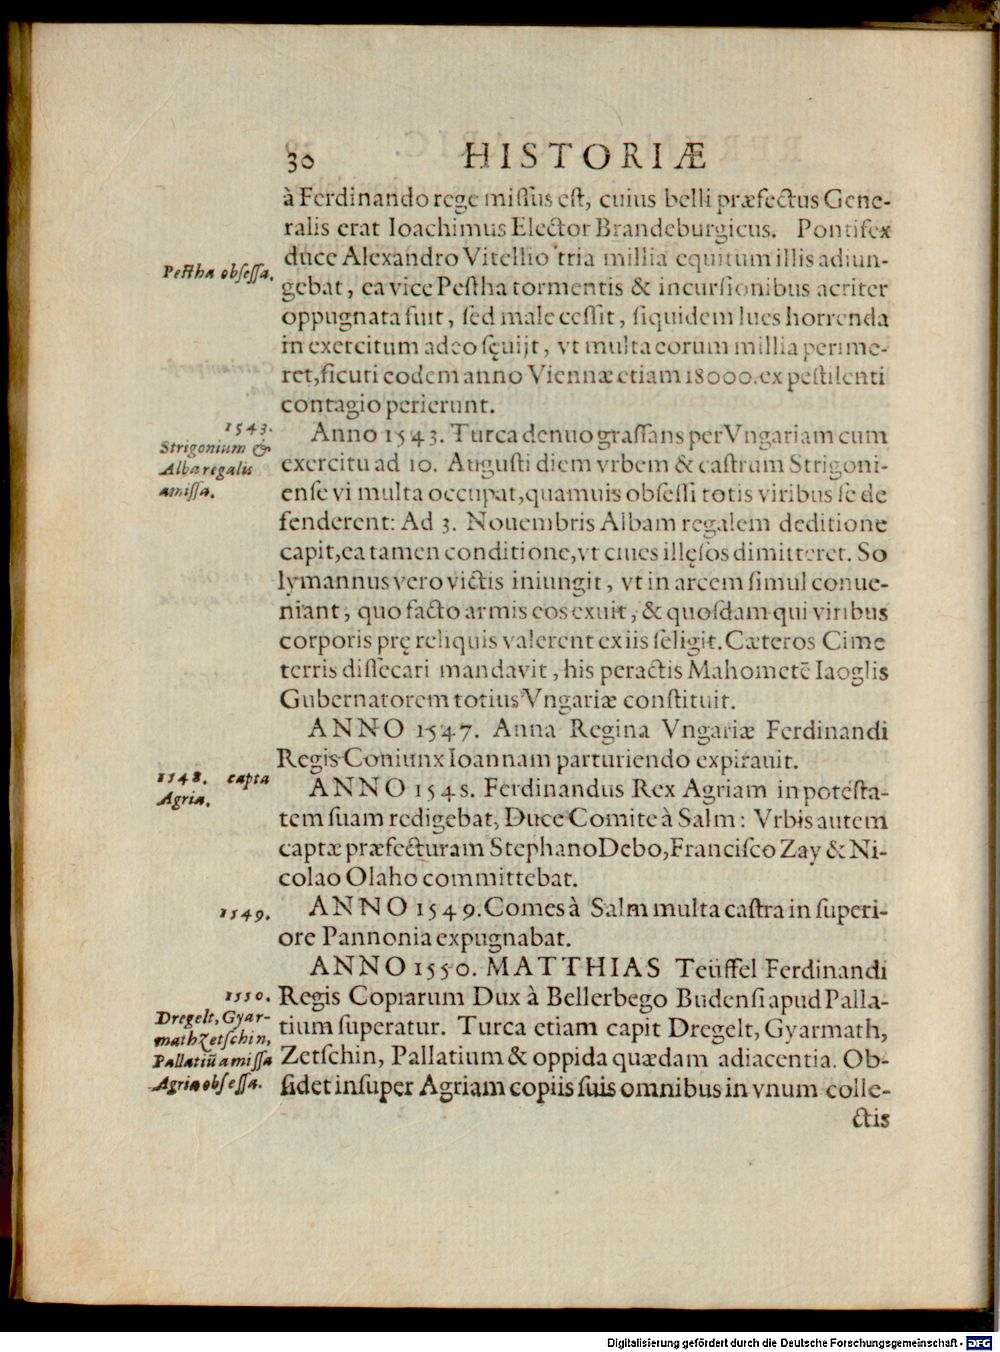 30 HISTORIÆ
à Ferdinando rege missus est, cuius belli præfectus Gene-
ralis erat Ioachimus Elector Brandeburgicus. Pontifex
duce Alexandro Vitellio tria millia equitum illis adiun-
Pestha obsessa.
gebat, ea vice Pestha tormentis & incursionibus acriter
oppugnata fuit, sed male cessit, siquidem lues horrenda
in exercitum adeo sęuijt, vt multa eorum millia perime-
ret, sicuti eodem anno Viennæ etiam 18000. ex pestilenti
contagio perierunt.
1543.
Strigonium &
Alba regalis
amissa.
Anno 1543. Turca denuo grassans per Vngariam cum
exercitu ad 10. Augusti diem vrbem & castrum Strigoni-
ense vi multa occupat, quamuis obsessi totis viribus se de
fenderent: Ad 3. Nouembris Albam regalem deditione
capit, ea tamen conditione, vt ciues illęsos dimitteret. So
lymannus vero victis iniungit, vt in arcem simul conue-
niant, quo facto armis eos exuit, & quosdam qui viribus
corporis prę reliquis valerent ex iis seligit. Cæteros Cime
terris dissecari mandavit, his peractis Mahometē Iaoglis
Gubernatorem totius Vngariæ constituit.
ANNO 1547. Anna Regina Vngariæ Ferdinandi
Regis Coniunx Ioannam parturiendo expirauit.
1548. capta
Agria.
ANNO 1548. Ferdinandus Rex Agriam in potesta-
tem suam redigebat, Duce Comite à Salm: Vrbis autem
captæ præfecturam Stephano Debo, Francisco Zay & Ni-
colao Olaho committebat.
1549.
ANNO 1549. Comes à Salm multa castra in superi-
ore Pannonia expugnabat.
ANNO 1550. MATTHIAS Teüffel Ferdinandi
1550.
Dregelt, Gyar-
math Zetschin,
Pallatiū amissa
Agria obsessa.
Regis Copiarum Dux à Bellerbego Budensi apud Palla-
tium superatur. Turca etiam capit Dregelt, Gyarmath,
Zetschin, Pallatium & oppida quædam adiacentia. Ob-
sidet insuper Agriam copiis suis omnibus in vnum colle-
ctis
Digitalisierung gefördert durch die Deutsche Forschungsgemeinschaft - DFG